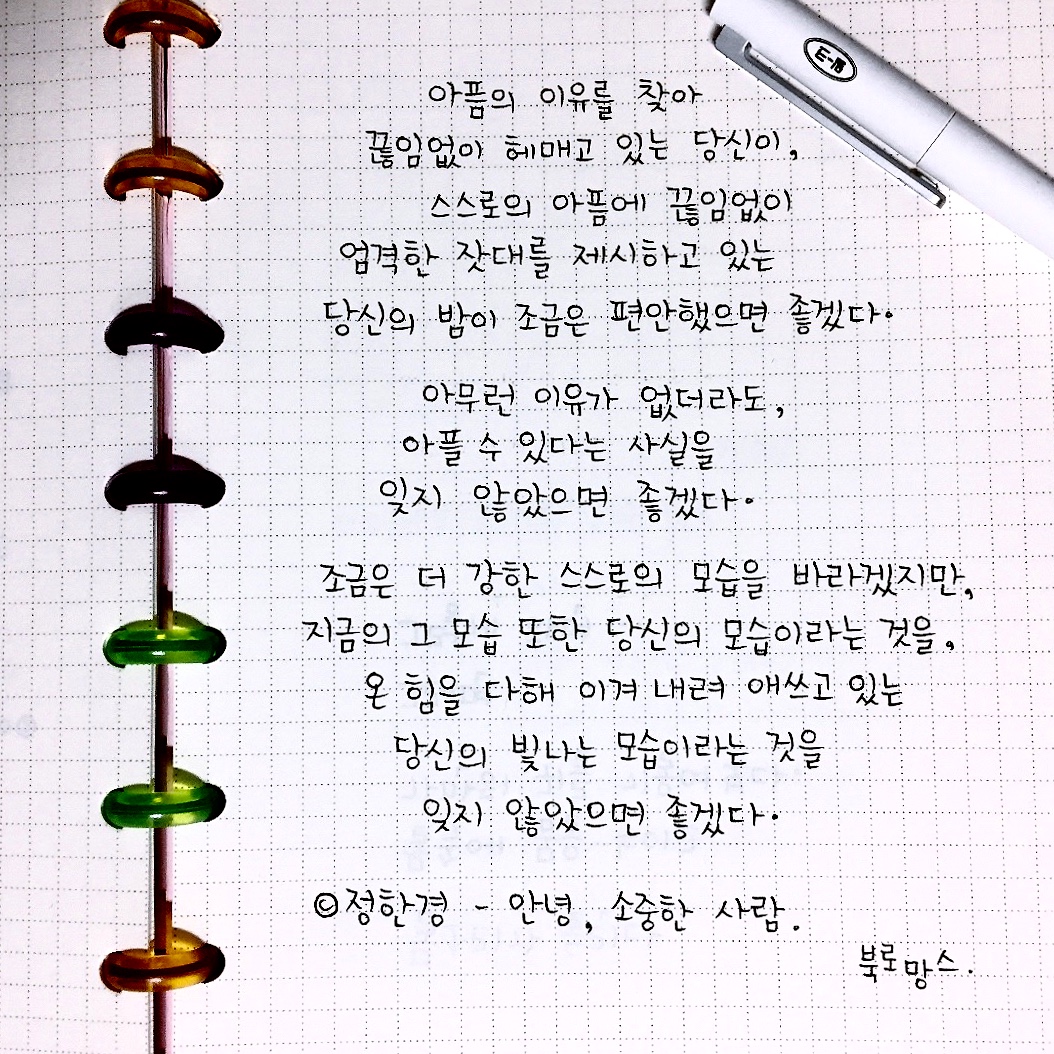 아픔의 이유를 찾아
끊임없이 헤매고 있는 당신이,
스스로의 아픔에 끊임없이
엄격한 잣대를 제시하고 있는
당신의 밤이 조금은 편안했으면 좋겠다.
아무런 이유가 없더라도,
아플 수 있다는 사실을
잊지 않았으면 좋겠다.
조금은 더 강한 스스로의 모습을 바라겠지만,
지금의 그 모습 또한 당신의 모습이라는 것을,
온 힘을 다해 이겨 내려 애쓰고 있는
당신의 빛나는 모습이라는 것을
잊지 않았으면 좋겠다.
©정한경 - 안녕, 소중한 사람.
북로망스.